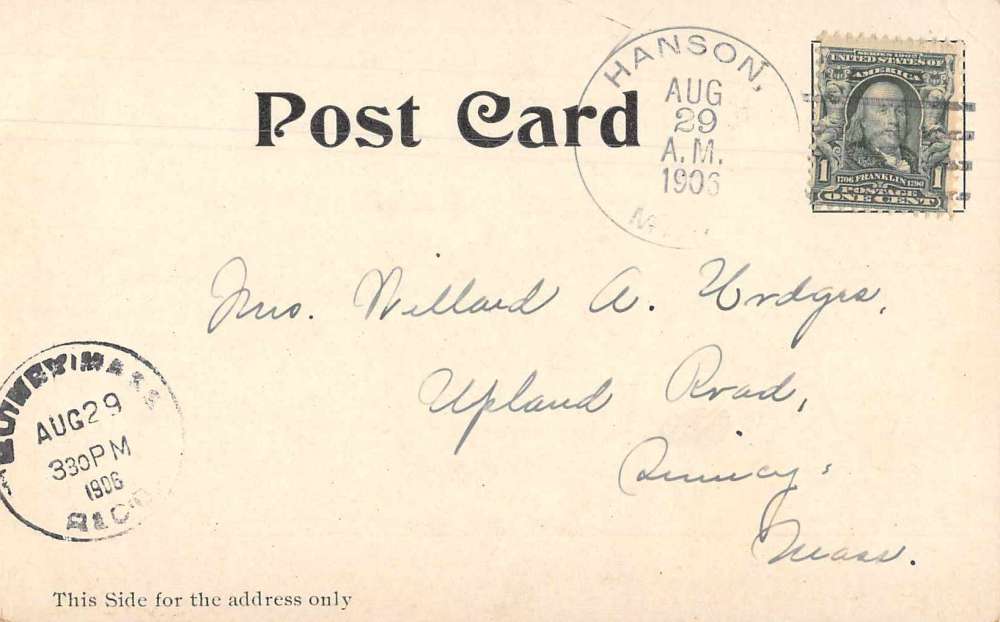 Post Card
HANSON,
AUG
29
A.M.
1906
SERIES 1902
UNITED STATES OF
AMERICA
1 1706 FRANKLIN 1790 1
POSTAGE
ONE CENT
Mrs. Willard A. Hodges,
Upland Road,
Quincy,
Mass.
QUINCY MASS
AUG 29
330 PM
1906
REC'D
This Side for the address only